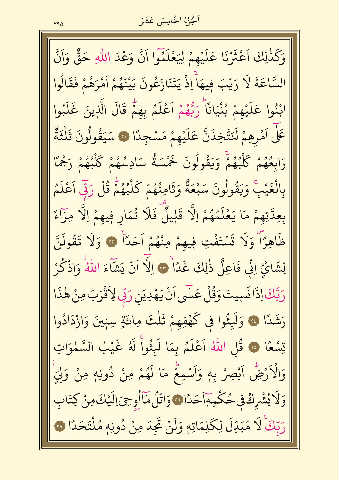 اَلْجُزْءُ الْخَامِسَ عَشَرَ
وَكَذٰلِكَ اَعْثَرْنَا عَلَيْهِمْ لِيَعْلَمُٓوا اَنَّ وَعْدَ اللّٰهِ حَقٌّ وَاَنَّ
السَّاعَةَ لَا رَيْبَ ف۪يهَاۚ اِذْ يَتَنَازَعُونَ بَيْنَهُمْ اَمْرَهُمْ فَقَالُوا
ابْنُوا عَلَيْهِمْ بُنْيَانًاۜ رَبُّهُمْ اَعْلَمُ بِهِمْۜ قَالَ الَّذ۪ينَ غَلَبُوا
عَلٰٓى اَمْرِهِمْ لَنَتَّخِذَنَّ عَلَيْهِمْ مَسْجِدًا ﴿٢١﴾ سَيَقُولُونَ ثَلٰثَةٌ
رَابِعُهُمْ كَلْبُهُمْۚ وَيَقُولُونَ خَمْسَةٌ سَادِسُهُمْ كَلْبُهُمْ رَجْمًا
بِالْغَيْبِۚ وَيَقُولُونَ سَبْعَةٌ وَثَامِنُهُمْ كَلْبُهُمْۜ قُلْ رَبّ۪ٓي اَعْلَمُ
بِعِدَّتِهِمْ مَا يَعْلَمُهُمْ اِلَّا قَل۪يلٌ۠ فَلَا تُمَارِ ف۪يهِمْ اِلَّا مِرَٓاءً
ظَاهِرًاۖ وَلَا تَسْتَفْتِ ف۪يهِمْ مِنْهُمْ اَحَدًا۟ ﴿٢٢﴾ وَلَا تَقُولَنَّ
لِشَا۬يْءٍ اِنّ۪ي فَاعِلٌ ذٰلِكَ غَدًاۙ ﴿٢٣﴾ اِلَّٓا اَنْ يَشَٓاءَ اللّٰهُۘ وَاذْكُرْ
رَبَّكَ اِذَا نَس۪يتَ وَقُلْ عَسٰٓى اَنْ يَهْدِيَنِ رَبّ۪ي لِاَقْرَبَ مِنْ هٰذَا
رَشَدًا ﴿٢٤﴾ وَلَبِثُوا ف۪ي كَهْفِهِمْ ثَلٰثَ مِائَةٍ سِن۪ينَ وَازْدَادُوا
تِسْعًا ﴿٢٥﴾ قُلِ اللّٰهُ اَعْلَمُ بِمَا لَبِثُواۚ لَهُ غَيْبُ السَّمٰوَاتِ
وَالْاَرْضِۜ اَبْصِرْ بِه۪ وَاَسْمِعْۜ مَا لَهُمْ مِنْ دُونِه۪ مِنْ وَلِيٍّۘ
وَلَا يُشْرِكُ ف۪ي حُكْمِه۪ٓ اَحَدًا ﴿٢٦﴾ وَاتْلُ مَٓا اُو۫حِيَ اِلَيْكَ مِنْ كِتَابِ
رَبِّكَۚ لَا مُبَدِّلَ لِكَلِمَاتِه۪ وَلَنْ تَجِدَ مِنْ دُونِه۪ مُلْتَحَدًا ﴿٢٧﴾